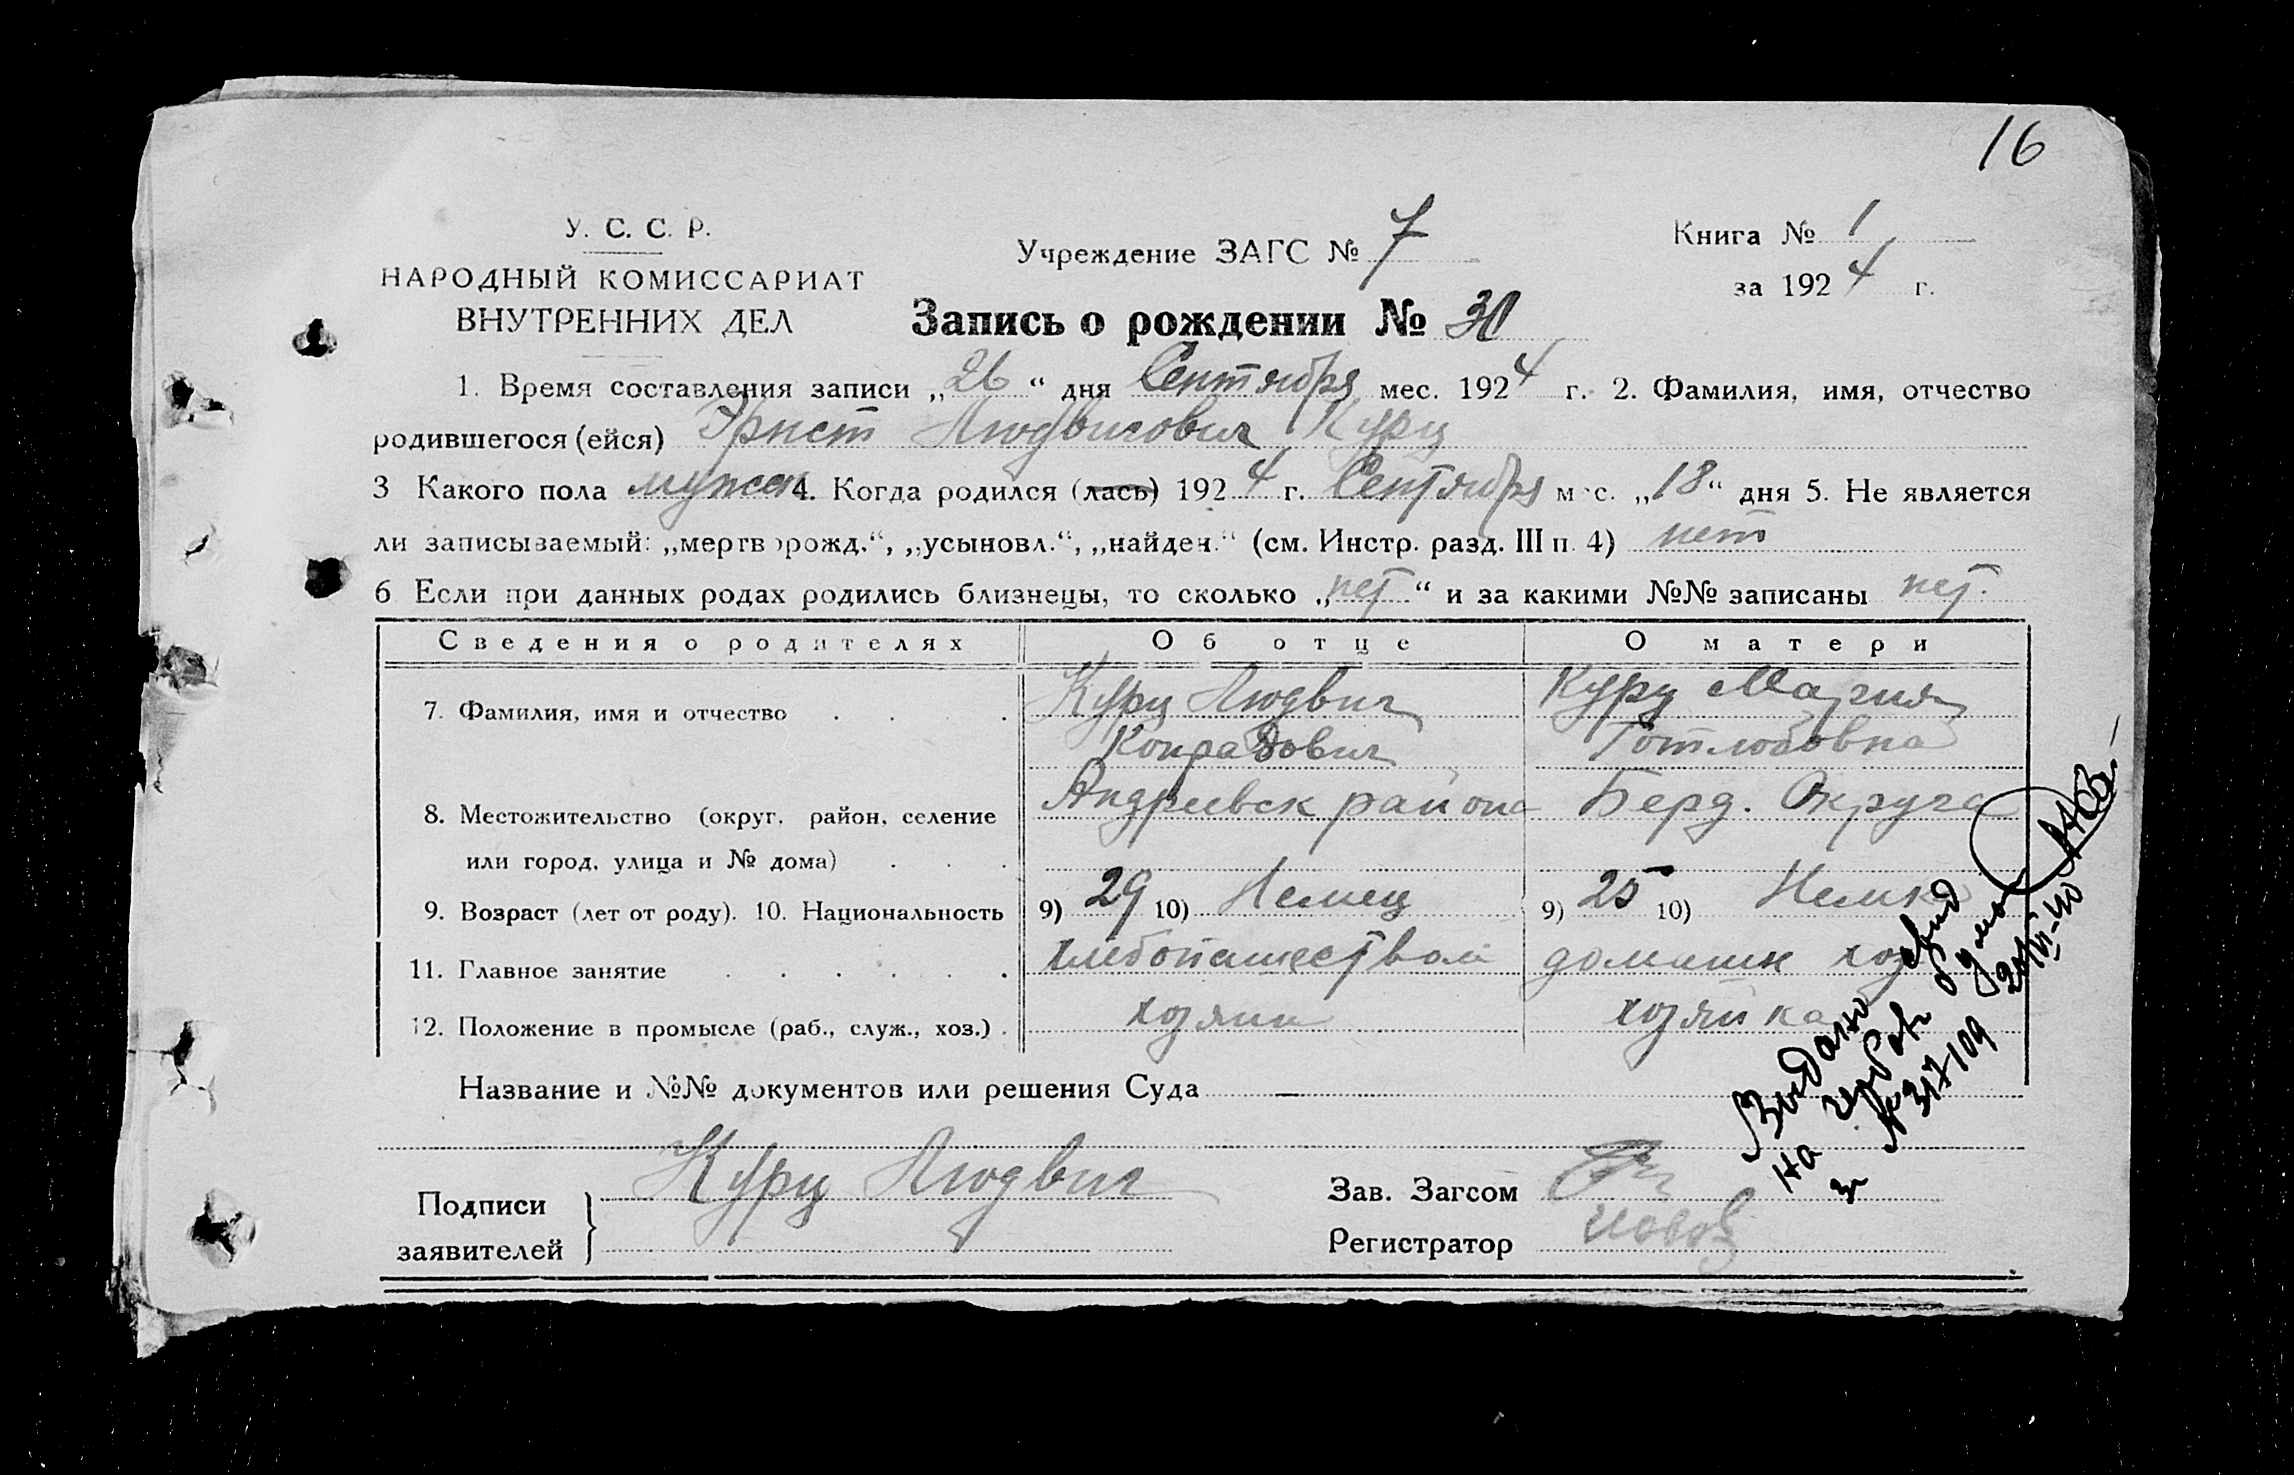 16
У. С. С. Р.
НАРОДНЫЙ КОМИССАРИАТ
ВНУТРЕННИХ ДЕЛ
Учреждение ЗАГС № 7
Книга № 1
за 1924 г.
Запись о рождении № 30
1. Время составления записи „26“ дня Сентября мес. 1924 г. 2. Фамилия, имя, отчество
родившегося (ейся) Эрнст Людвигович Курц
3 Какого пола мужск 4. Когда родился (лась) 1924 г. Сентября мес. „18“ дня 5. Не является
ли записываемый: „мертворожд.“, „усыновл.“, „найден.“ (см. Инстр. разд. III п. 4) нет
6 Если при данных родах родились близнецы, то сколько „нет“ и за какими №№ записаны нет.
Сведения о родителях Об отце О матери
7. Фамилия, имя и отчество . . . . Курц Людвиг Курц Мария
Конрадович Готлибовна
8. Местожительство (округ, район, селение Андреевск района Берд. Округа
или город, улица и № дома) . . .
9. Возраст (лет от роду). 10. Национальность 9) 29 10) Немец 9) 25 10) Немка
11. Главное занятие . . . . . . хлебопашеством домашн хоз
12. Положение в промысле (раб., служ., хоз.) . хозяин хозяйка
Название и №№ документов или решения Суда —
Подписи
заявителей
Курц Людвиг
Зав. Загсом
Регистратор
Выдано
на
№ 317109